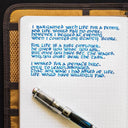 I BARGAINED WITH LIFE FOR A PENNY,
AND LIFE WOULD PAY NO MORE,
HOWEVER I BEGGED AT EVENING
WHEN I COUNTED MY SCANTY STORE.
FOR LIFE IS A JUST EMPLOYER,
HE GIVES YOU WHAT YOU ASK,
BUT ONCE YOU HAVE SET THE WAGES,
WHY, YOU MUST BEAR THE TASK.
I WORKED FOR A MENIAL'S HIRE,
ONLY TO LEARN, DISMAYED,
THAT ANY WAGE I HAD ASKED OF LIFE,
LIFE WOULD HAVE WILLINGLY PAID.